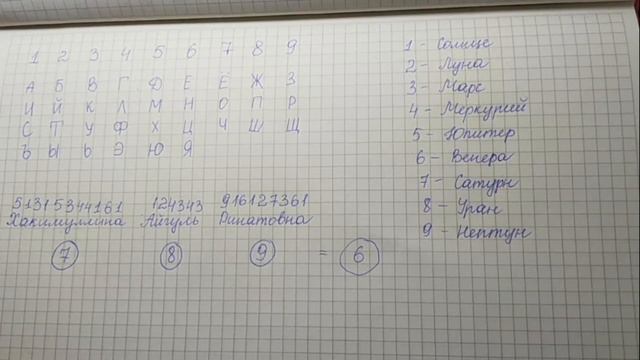 1 2 3 4 5 6 7 8 9
А Б В Г Д Е Ё Ж З
И Й К Л М Н О П Р
С Т У Ф Х Ц Ч Ш Щ
Ъ Ы Ь Э Ю Я
51315344161 124343 916127361
Хакимуллина Айгуль Ринатовна
7 8 9 = 6
1 - Солнце
2 - Луна
3 - Марс
4 - Меркурий
5 - Юпитер
6 - Венера
7 - Сатурн
8 - Уран
9 - Нептун